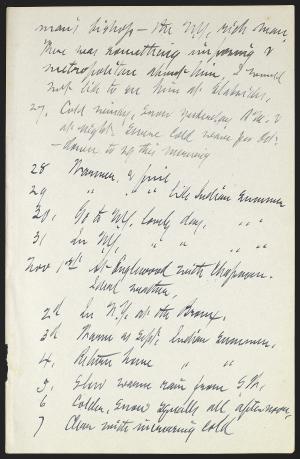 man's bishop — the N.Y. rich man.
There was something imposing &
metropolitan about him, I would
not like to see him at Slabsides.
27, Cold windy, snow yesterday P.M. &
at night. Severe cold wave for Oct.
— down to 29 this morning
28 Warmer, & fine
29 " " " like Indian summer
30, Go to N.Y. lovely day, " "
31 In N.Y. " " " "
Nov 1st At Englewood with Chapman.
Ideal weather,
2d In N.Y. at the Bronx.
3d Warm as Sept. Indian summer,
4, Return home " "
5, Slow warm rain from S.W.
6 Colder, snow squalls all afternoon,
7 Clear with increasing cold